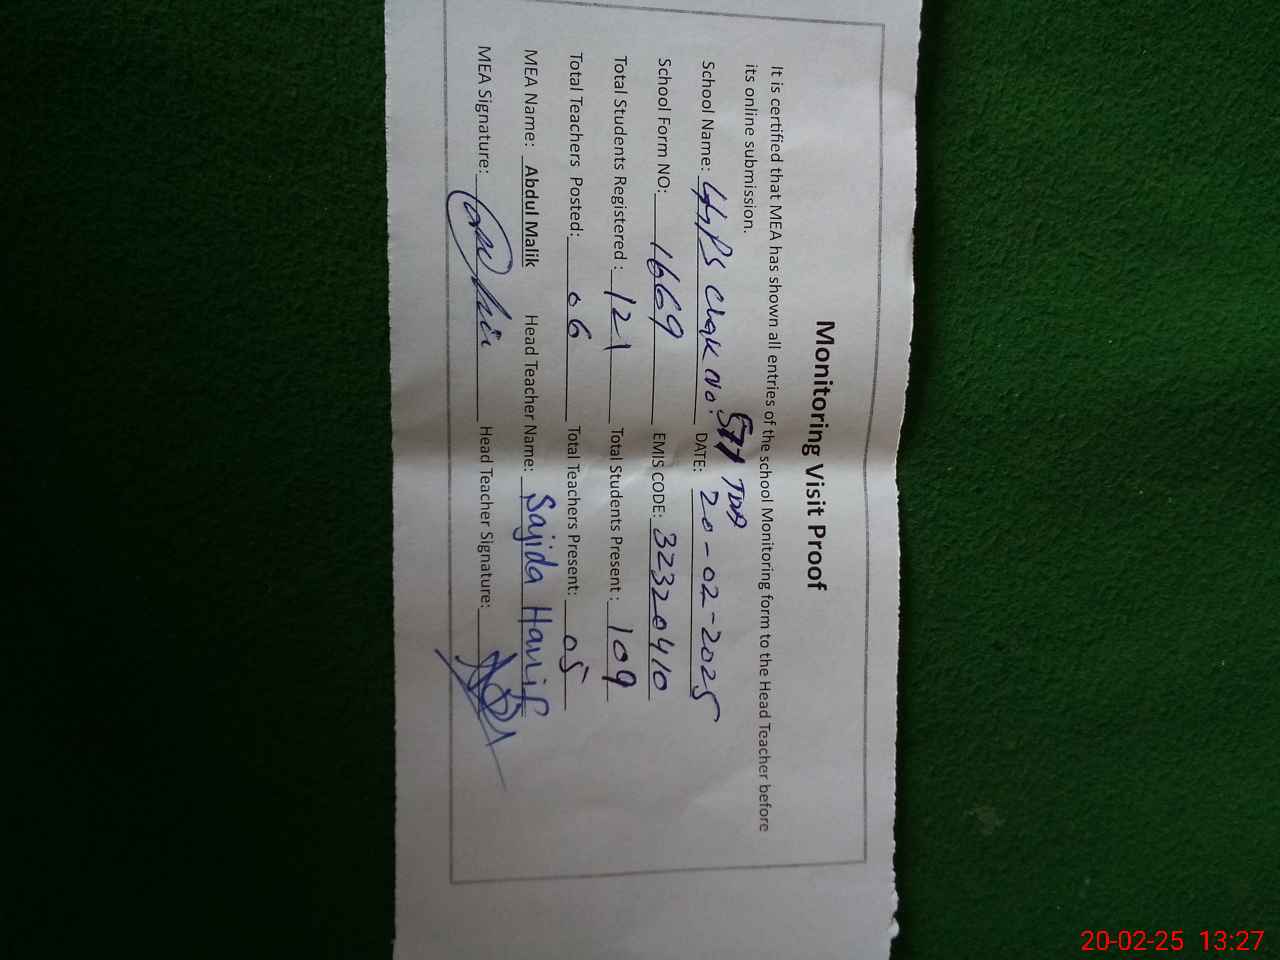 Monitoring Visit Proof
It is certified that MEA has shown all entries of the school Monitoring form to the Head Teacher before
its online submission.
School Name: GGPS Chak No. 577 TDA DATE: 20-02-2025
School Form NO: 1669 EMIS CODE: 32320410
Total Students Registered : 121 Total Students Present : 109
Total Teachers Posted: 06 Total Teachers Present: 05
MEA Name: Abdul Malik Head Teacher Name: Sajida Hanif
MEA Signature: Head Teacher Signature:
20-02-25 13:27